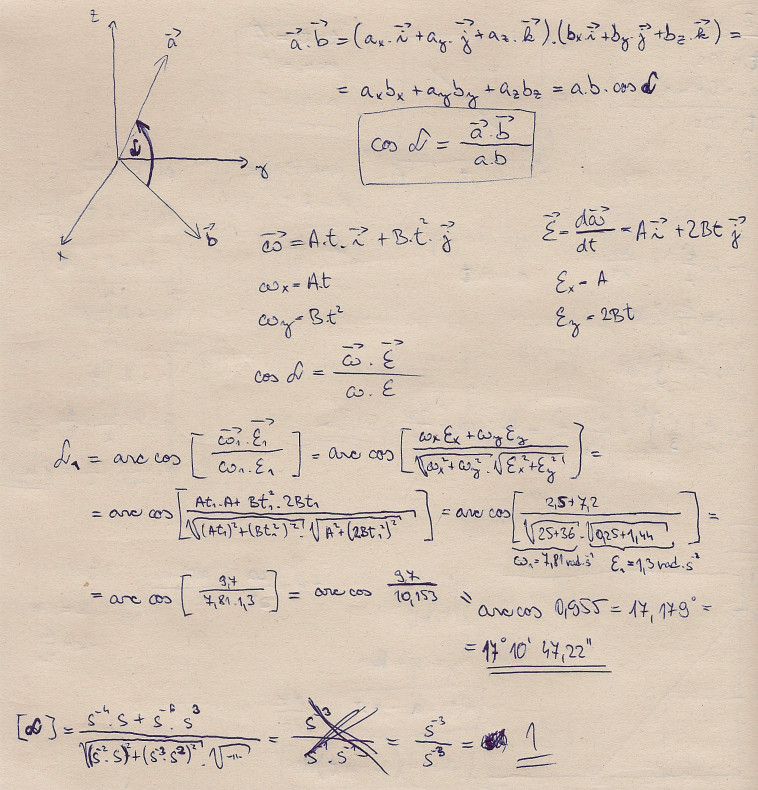 z
a⃗
α
y
x
b⃗
a⃗.b⃗ = (ax.i⃗ + ay.j⃗ + az.k⃗).(bx.i⃗ + by.j⃗ + bz.k⃗) =
= axbx + ayby + azbz = a.b.cos α
cos α = a⃗.b⃗ / a.b
ω⃗ = A.t.i⃗ + B.t².j⃗
ε⃗ = dω⃗/dt = A i⃗ + 2Bt j⃗
ωx = A.t
εx = A
ωy = Bt²
εy = 2Bt
cos α = ω⃗.ε⃗ / ω.ε
α₁ = arc cos [ω⃗₁.ε⃗₁ / ω₁.ε₁] = arc cos [(ωxεx + ωyεy) / (√(ωx²+ωy²).√(εx²+εy²))] =
= arc cos [(At₁.A + Bt₁².2Bt₁) / (√((At₁)²+(Bt₁²)²).√(A²+(2Bt₁)²))] = arc cos [(2,5+7,2) / (√(25+36).√(0,25+1,44))] =
ω₁=7,81 rad.s⁻¹ ε₁=1,3 rad.s⁻²
= arc cos [9,7 / 7,81.1,3] = arc cos 9,7/10,153 = arc cos 0,955 = 17,179° =
= 17° 10' 47,22"
[α] = (s⁻⁴.s + s⁻⁶.s³) / (√((s⁻².s)²+(s⁻³.s²)²).√(–"–)) = s⁻³ / s⁻¹.s⁻² = s⁻³/s⁻³ = 1